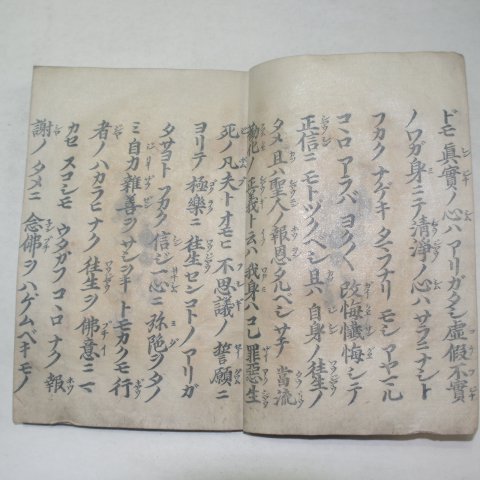 ドモ眞實ノ心ハアリガタシ虚假不實
ノワガ身ニテ清淨ノ心ハサラニナシト
フカクナゲキタマフナリモシアヤマル
コヽロアラバヨク〱改悔懺悔シテ
正信ニモトヅクベシ具ハ自身ノ往生ノ
タメ且ハ聖人ノ報恩タルベシサテ當流
勸化ノ正義ト云ハ我身ハコレ罪惡生
死ノ凡夫トオモヒ不思議ノ誓願ニ
ヨリテ極樂ニ往生センコトノアリガ
タサヨトフカク信ジ一心ニ弥陀ヲタノ
ミ自力雜善ヲサシヲキトモカクモ行
者ノハカラヒナク往生ヲ佛意ニマ
カセスコシモウタガフコヽロナク報
謝ノタメニ念佛ヲハゲムベキモノ